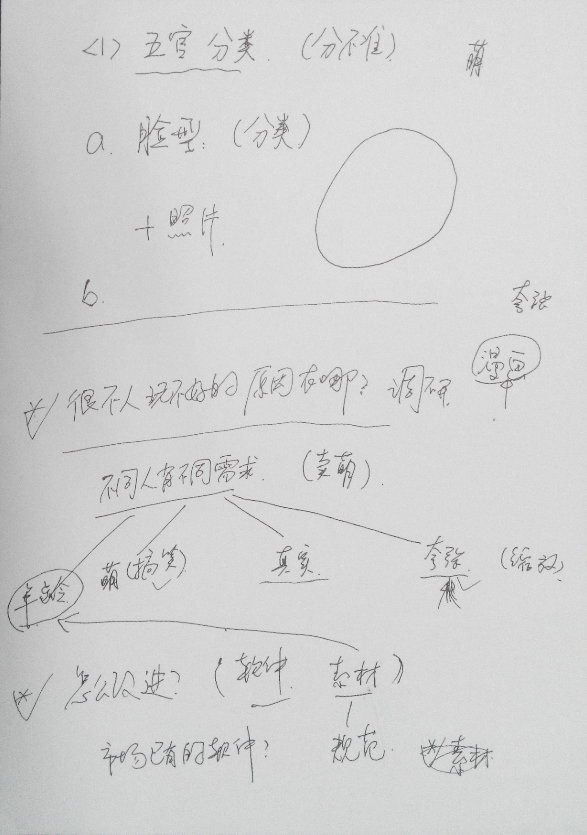 <1> 五官分类. (分不准)
萌
a. 脸型. (分类)
+照片.
b.
夸张
漫画
很不人玩不好的原因在哪? 调研
不同人有不同需求. (卖萌).
年龄
萌(搞笑)
真实.
夸张 (缩放)
怎么改进? (软件. 素材)
市场已有的软件?
规范.
素材